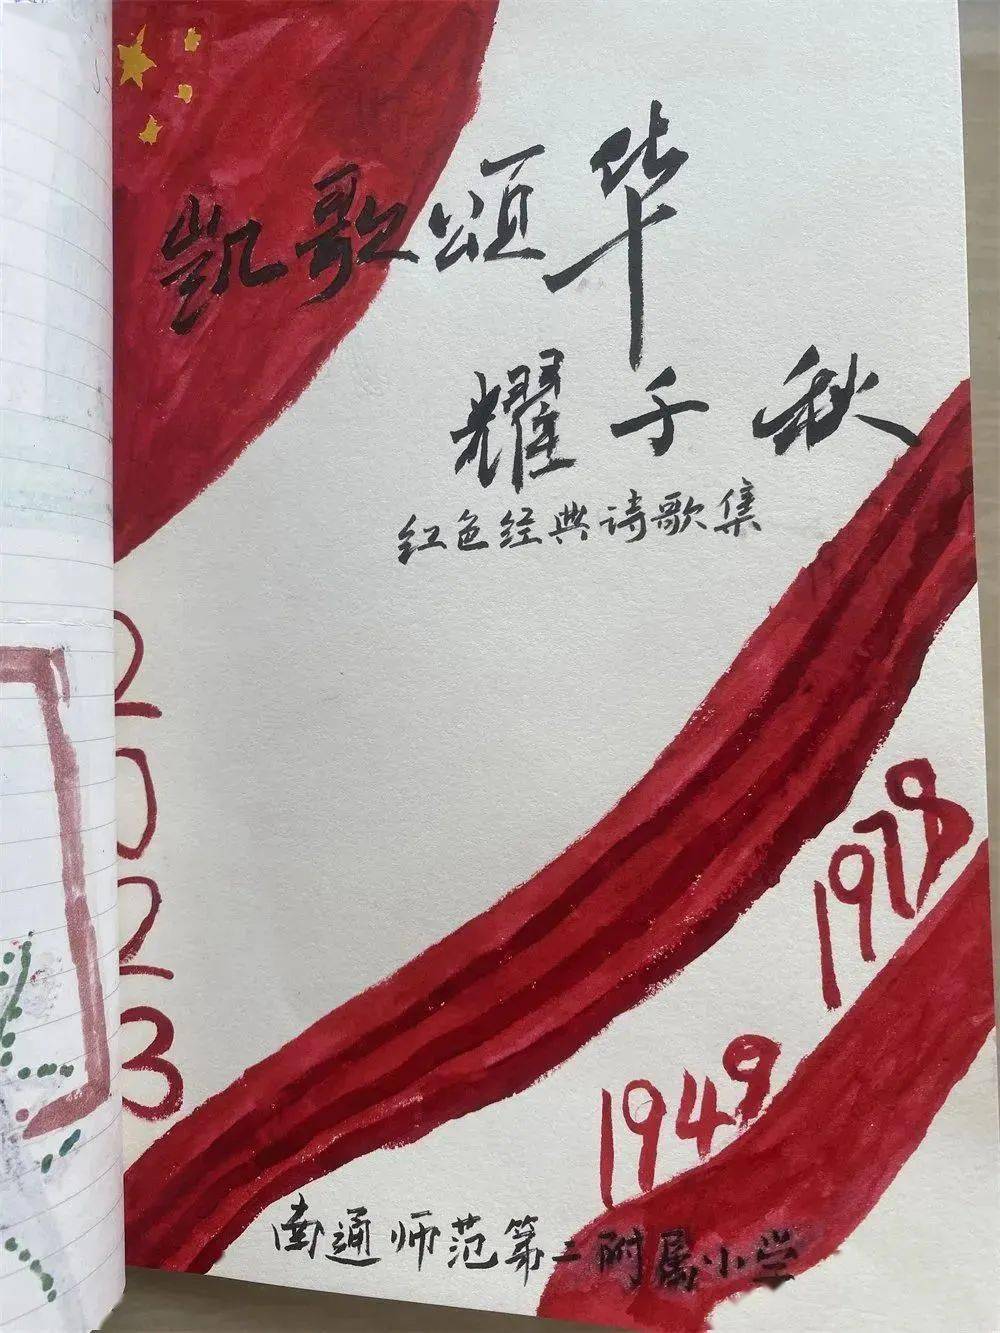 凯歌颂华
耀千秋
红色经典诗歌集
2023
1978
1949
南通师范第二附属小学